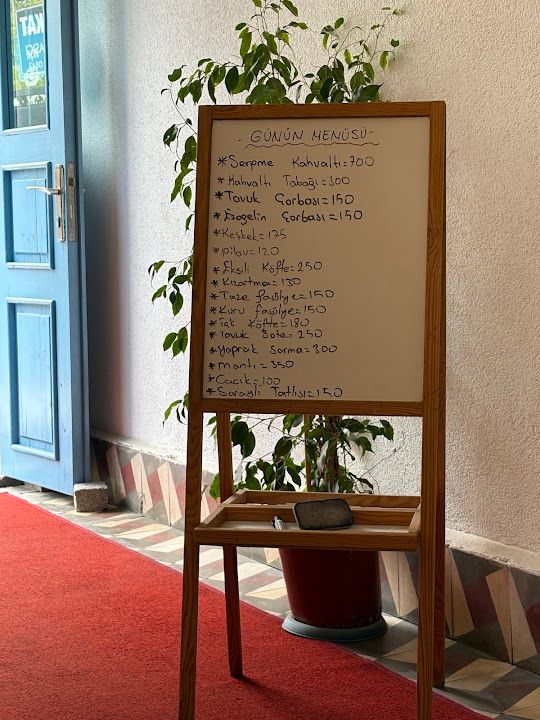 KAT
AŞÇI
- GÜNÜN MENÜSÜ -
* Serpme Kahvaltı=700
* Kahvaltı Tabağı=300
* Tavuk Çorbası=150
* Ezogelin Çorbası=150
* Keşkek=175
* Pilav=120
* Ekşili Köfte=250
* Kızartma=130
* Taze fasülye=150
* Kuru fasülye=150
* İçli Köfte=180
* Tavuk Sote=250
* Yaprak Sarma=300
* Mantı=350
* Cacık=100
* Saraylı Tatlısı=150